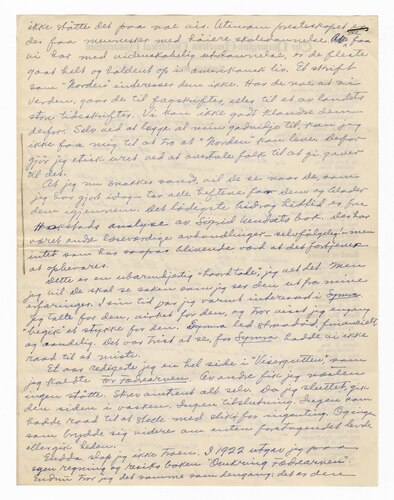 ikke støtte det paa noe vis. Utenom presteskapet er
der faa mennesker med høiere skoledannelse. De faa
vi har med videnskabelig utdannelse, er de fleste
gaat helt og holdent op i amerikansk liv. Et skrift
som "Norden" interesser dem ikke. Har de noe at si
verden, gaar de til fagskrifter, eller til et av landets
store tidsskrifter. Vi kan ikke godt klandre dem
derfor. Selv ved at lægge al min godvilje til, kan jeg
ikke faa mig til at tro at "Norden" kan leve. Derfor
gjør jeg etisk uret ved at overtale folk til at gi gaver
til det.
At jeg nu snakker sandt, vil de se naar de, som
jeg har gjort idag, tar alle heftene for dem og blader
dem igjennem. Det betydeligste bidrag hittil er fru
analyse av Sigrid Undsets bok. Der har
været andre læseværdige avhandlinger - selvfølgelig - men
intet som har saapass blivende værd at det fortjener
at opbevares.
Dette er en ubarmhjertig "haard tale", jeg vet det. Men
jeg vil De skal se saken som jeg ser den ut fra mine
erfaringer. I sin tid var jeg varmt interessert i Symra
jeg talte for den, virket for den, og tror visst jeg engang
"begik" et stykke for den. Symra led skræddød, financielt
og aandelig. Det var trist at se, for Symra hadde vi ikke
raad til at miste.
Et aar redigerte jeg en hel side i "Visergutten", som
jeg kaldte For Fædrearven. Av andre fik jeg næsten
ingen støtte. Skrev omtrent alt selv. Da jeg sluttet, gik
den siden i vasken. Ingen tilslutning. Ingen som
hadde raad til at stelle med slikt for ingenting. Og ingen
som brydde sig videre om enten foretagendet levde
eller gik heden.
Endda slap jeg ikke troen. I 1922 utgav jeg paa
egen regning og risiko boken "Omkring Fædrearven"
Endnu tror jeg det samme som dengang: det er dens